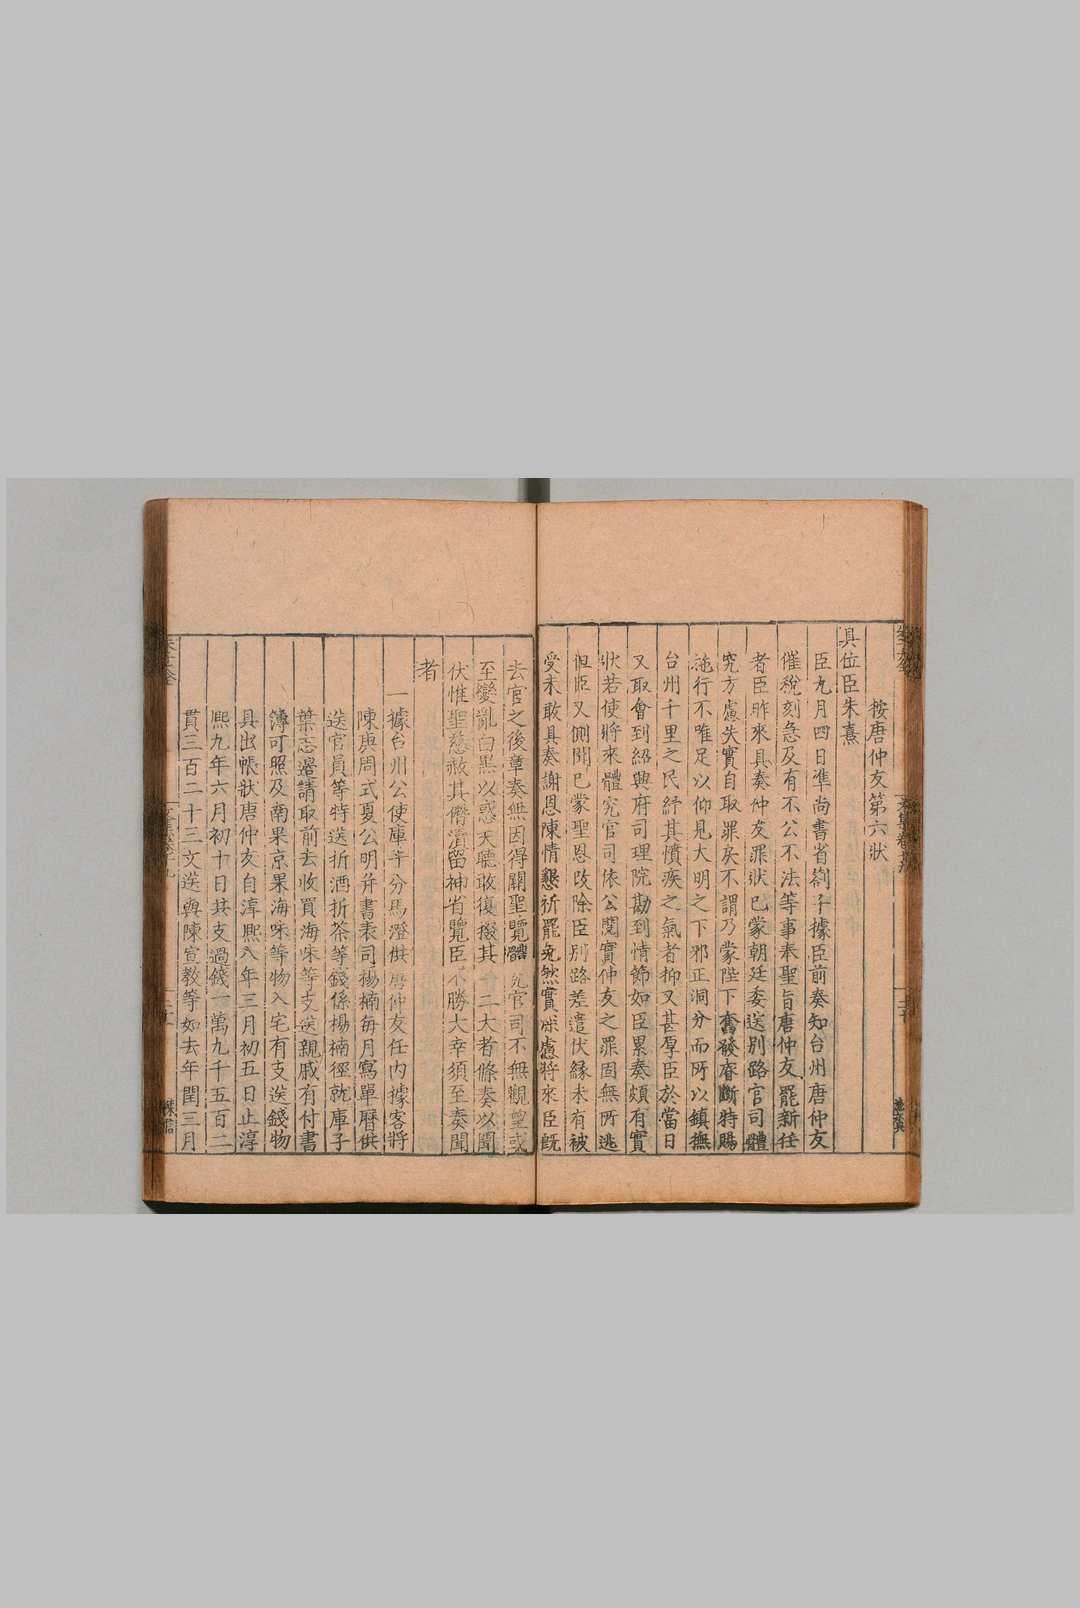 按唐仲友第六狀
具位臣朱熹
臣九月四日準尚書省劄子據臣前奏知台州唐仲友
催稅刻急及有不公不法等事奉聖旨唐仲友罷新任
者臣昨來具奏仲友罪狀已蒙朝廷委送別路官司體
究方慮失實自取罪戾不謂乃蒙陛下奮發睿斷特賜
施行不唯足以仰見大明之下邪正洞分而所以鎮撫
台州千里之民紓其憤疾之氣者抑又甚厚臣於當日
又取會到紹興府司理院勘到情節如臣累奏頗有實
狀若使將來體究官司依公閱實仲友之罪固無所逃
但臣又側聞已蒙聖恩改除臣別路差遣伏緣未有被
受未敢具奏謝恩陳情懇祈罷免然實深慮將來臣既
去官之後章奏無因得關聖覽體究官司不無觀望或
至變亂白黑以惑天聽敢復掇其二大者條奏以聞
伏惟聖慈赦其僭瀆留神省覽臣不勝大幸須至奏聞
者
一據台州公使庫手分馬澄供唐仲友任內據客將
陳庚周式夏公明幷書表司楊楠每月寫單曆供
送官員等特送折酒折茶等錢係楊楠徑就庫子
葉志邊請取前去收買海味等支送親戚有付書
簿可照及南果京果海味等物入宅有支送錢物
具出帳狀唐仲友自淳熙八年三月初五日止淳
熙九年六月初十日共支過錢一萬九千五百二
貫三百二十三文送與陳宣教等如去年閏三月